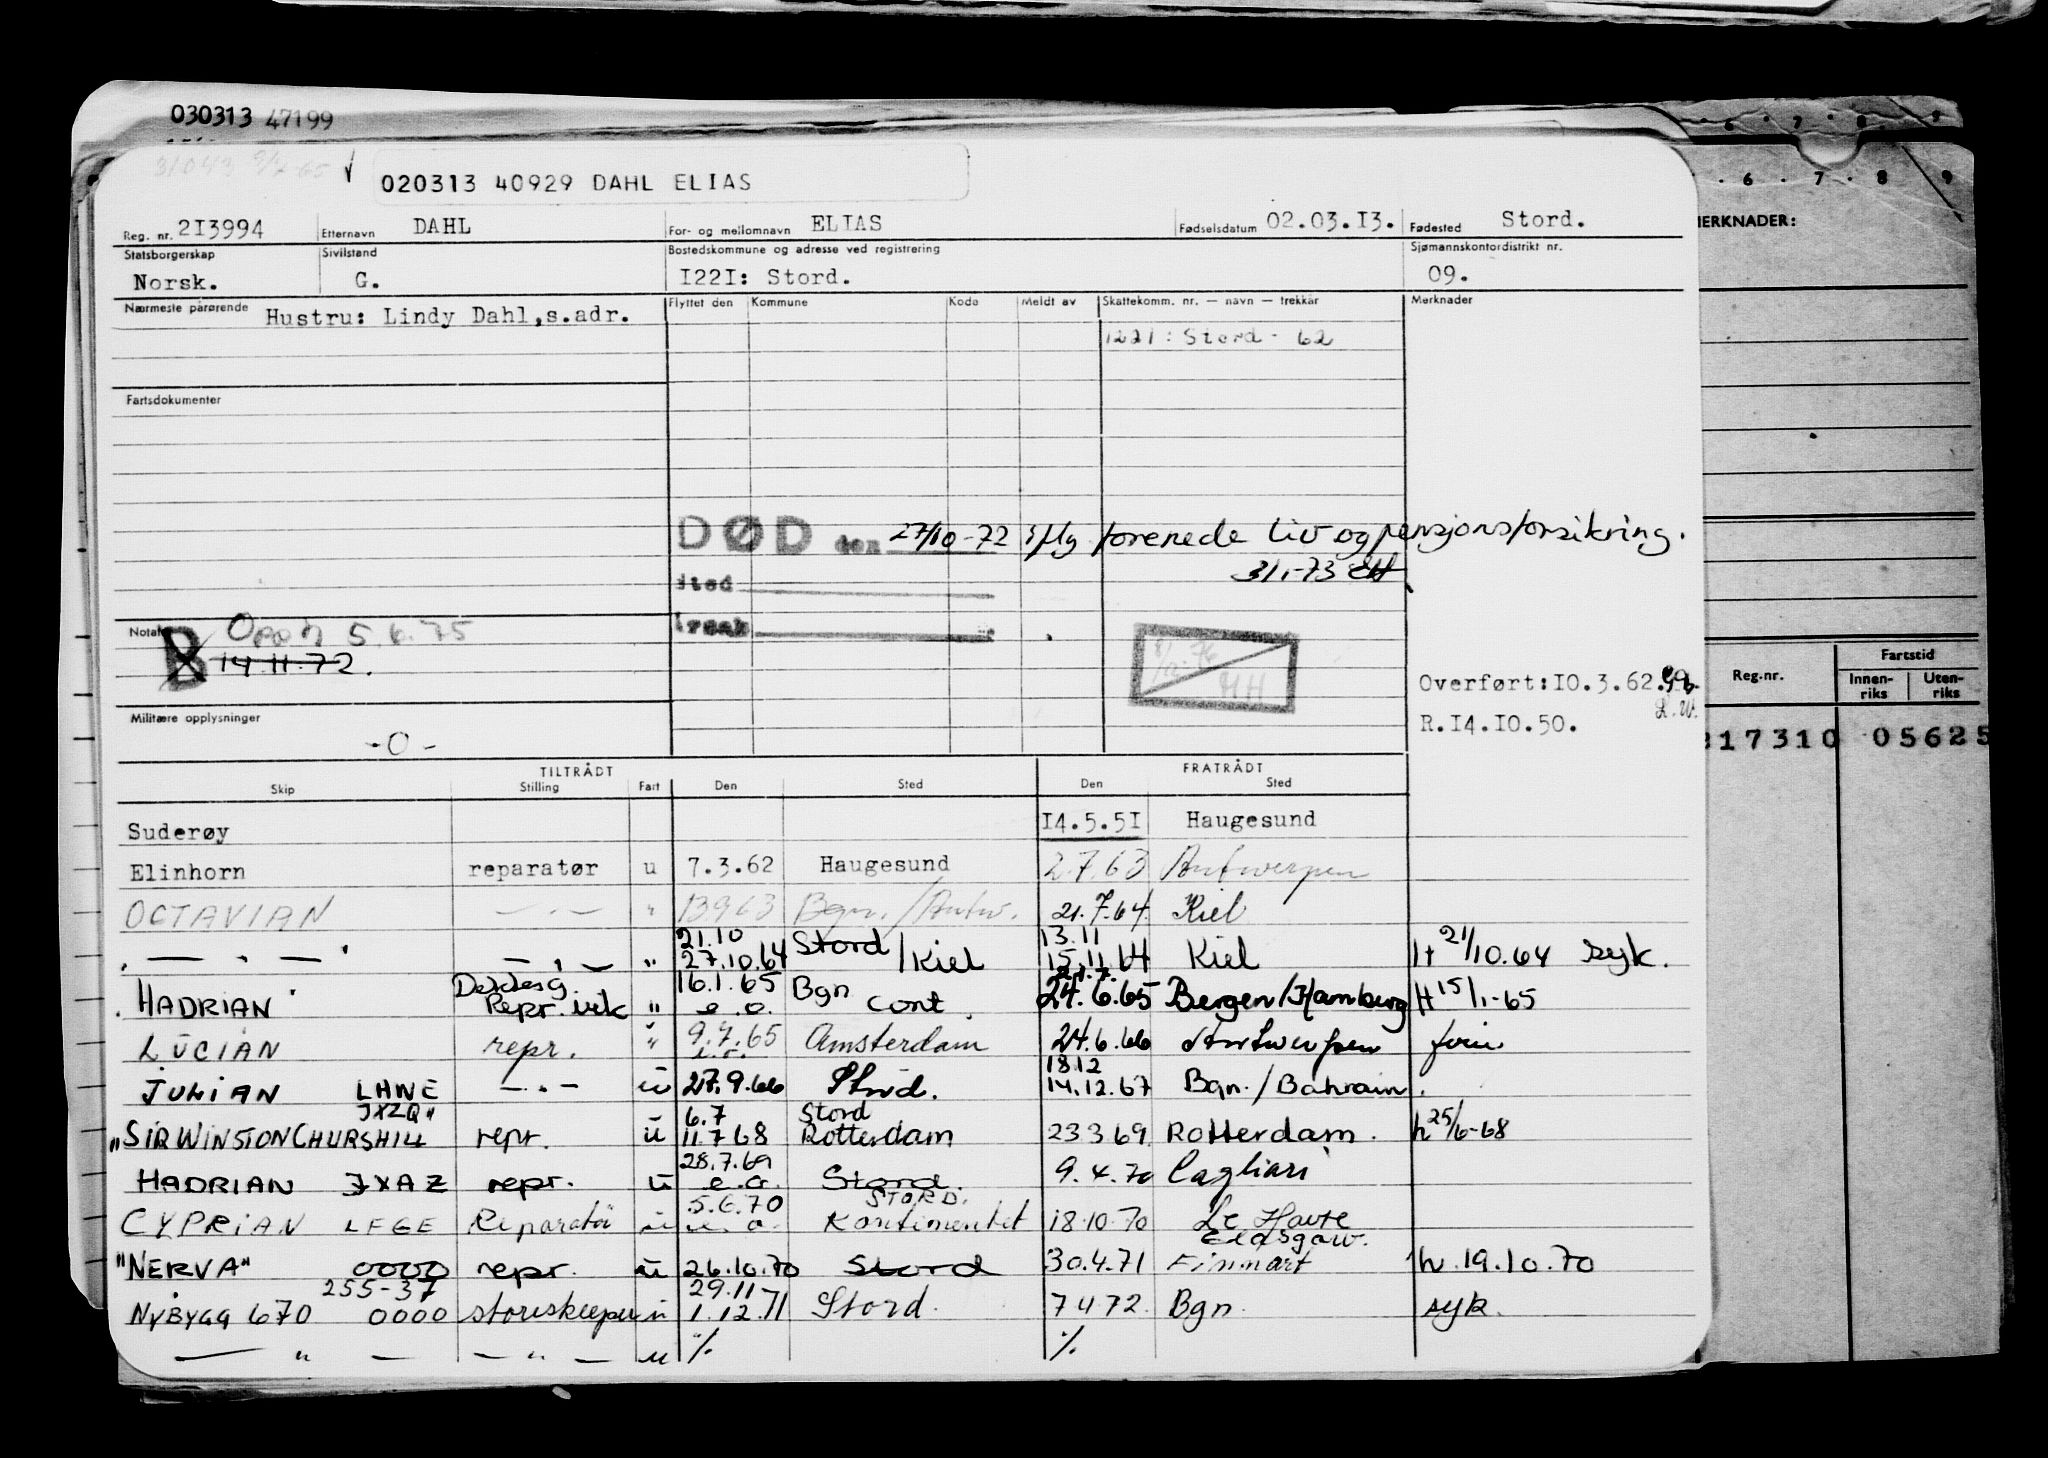 030313 47199
6 7 8 9
31043 9/7-65
020313 40929 DAHL ELIAS
6 7 8 9
MERKNADER:
Reg. nr. 2I3994 Etternavn DAHL For- og mellomnavn ELIAS Fødselsdatum 02.03.I3. Fødested Stord.
Statsborgerskap Sivilstand Bostedskommune og adresse ved registrering Sjømannskontordistrikt nr.
Norsk. G. I22I: Stord. 09.
Nærmeste pårørende Hustru: Lindy Dahl,s.adr. Flyttet den Kommune Kode Meldt av Skattekomm. nr. — navn — trekkår Merknader
1221: Stord - 62
Fartsdokumenter
DØD den 27/10-72 iflg forenede liv og pensjonsforsikring.
31/1-73 EH
Sted
Notat B Opph 5.6.75
14.11.72.
Årsak
MH
Overført:I0.3.62.
R.I4.I0.50.
Militære opplysninger
-0-
Reg.nr. Fartstid
Innen-riks Uten-riks
217310 05625
TILTRÅDT FRATRÅDT
Skip Stilling Fart Den Sted Den Sted
Suderøy I4.5.5I Haugesund
Elinhorn reparatør u 7.3.62 Haugesund 2.7.63 Antwerpen
OCTAVIAN — . — " 13963 Bgn. /Antw. 21.7.64. Kiel
21.10 Stord 13.11
— . — — . — " 27.10.64 /Kiel 15.11.64 Kiel ht 21/10.64 syk.
Dekksg. 16.1.65 Bgn 21.7.
HADRIAN Repr. vik " e.o. cont. 24.6.65 Bergen/Hamburg H 15/1-65
LUCIAN repr. " 9.7.65 e.o. Amsterdam 24.6.66 Antwerpen ferie
18.12
JULIAN LHWE — . — u 27.9.66 Stord. 14.12.67 Bgn./Bahrain.
JXZQ" 6.7 Stord
"SIR WINSTON CHURSHILL repr. u 11.7 68 Rotterdam 23 3 69 Rotterdam. h 25/6-68
28.7.69
HADRIAN JXAZ repr. u e.o. Stord. 9.4.70 Cagliari
5.6.70 STORD.
CYPRIAN LFGE Reparatör u e.o. Kontinentet 18.10.70 Le Havre
Glasgow.
"NERVA" 0000 repr. u 26.10.70 Stord 30.4.71 Finnart h.19.10.70
255-37 29.11
NYBYGG 670 0000 storekeeper u 1.12.71 Stord. 7 4 72 Bgn. syk.
— " — — " — u % %